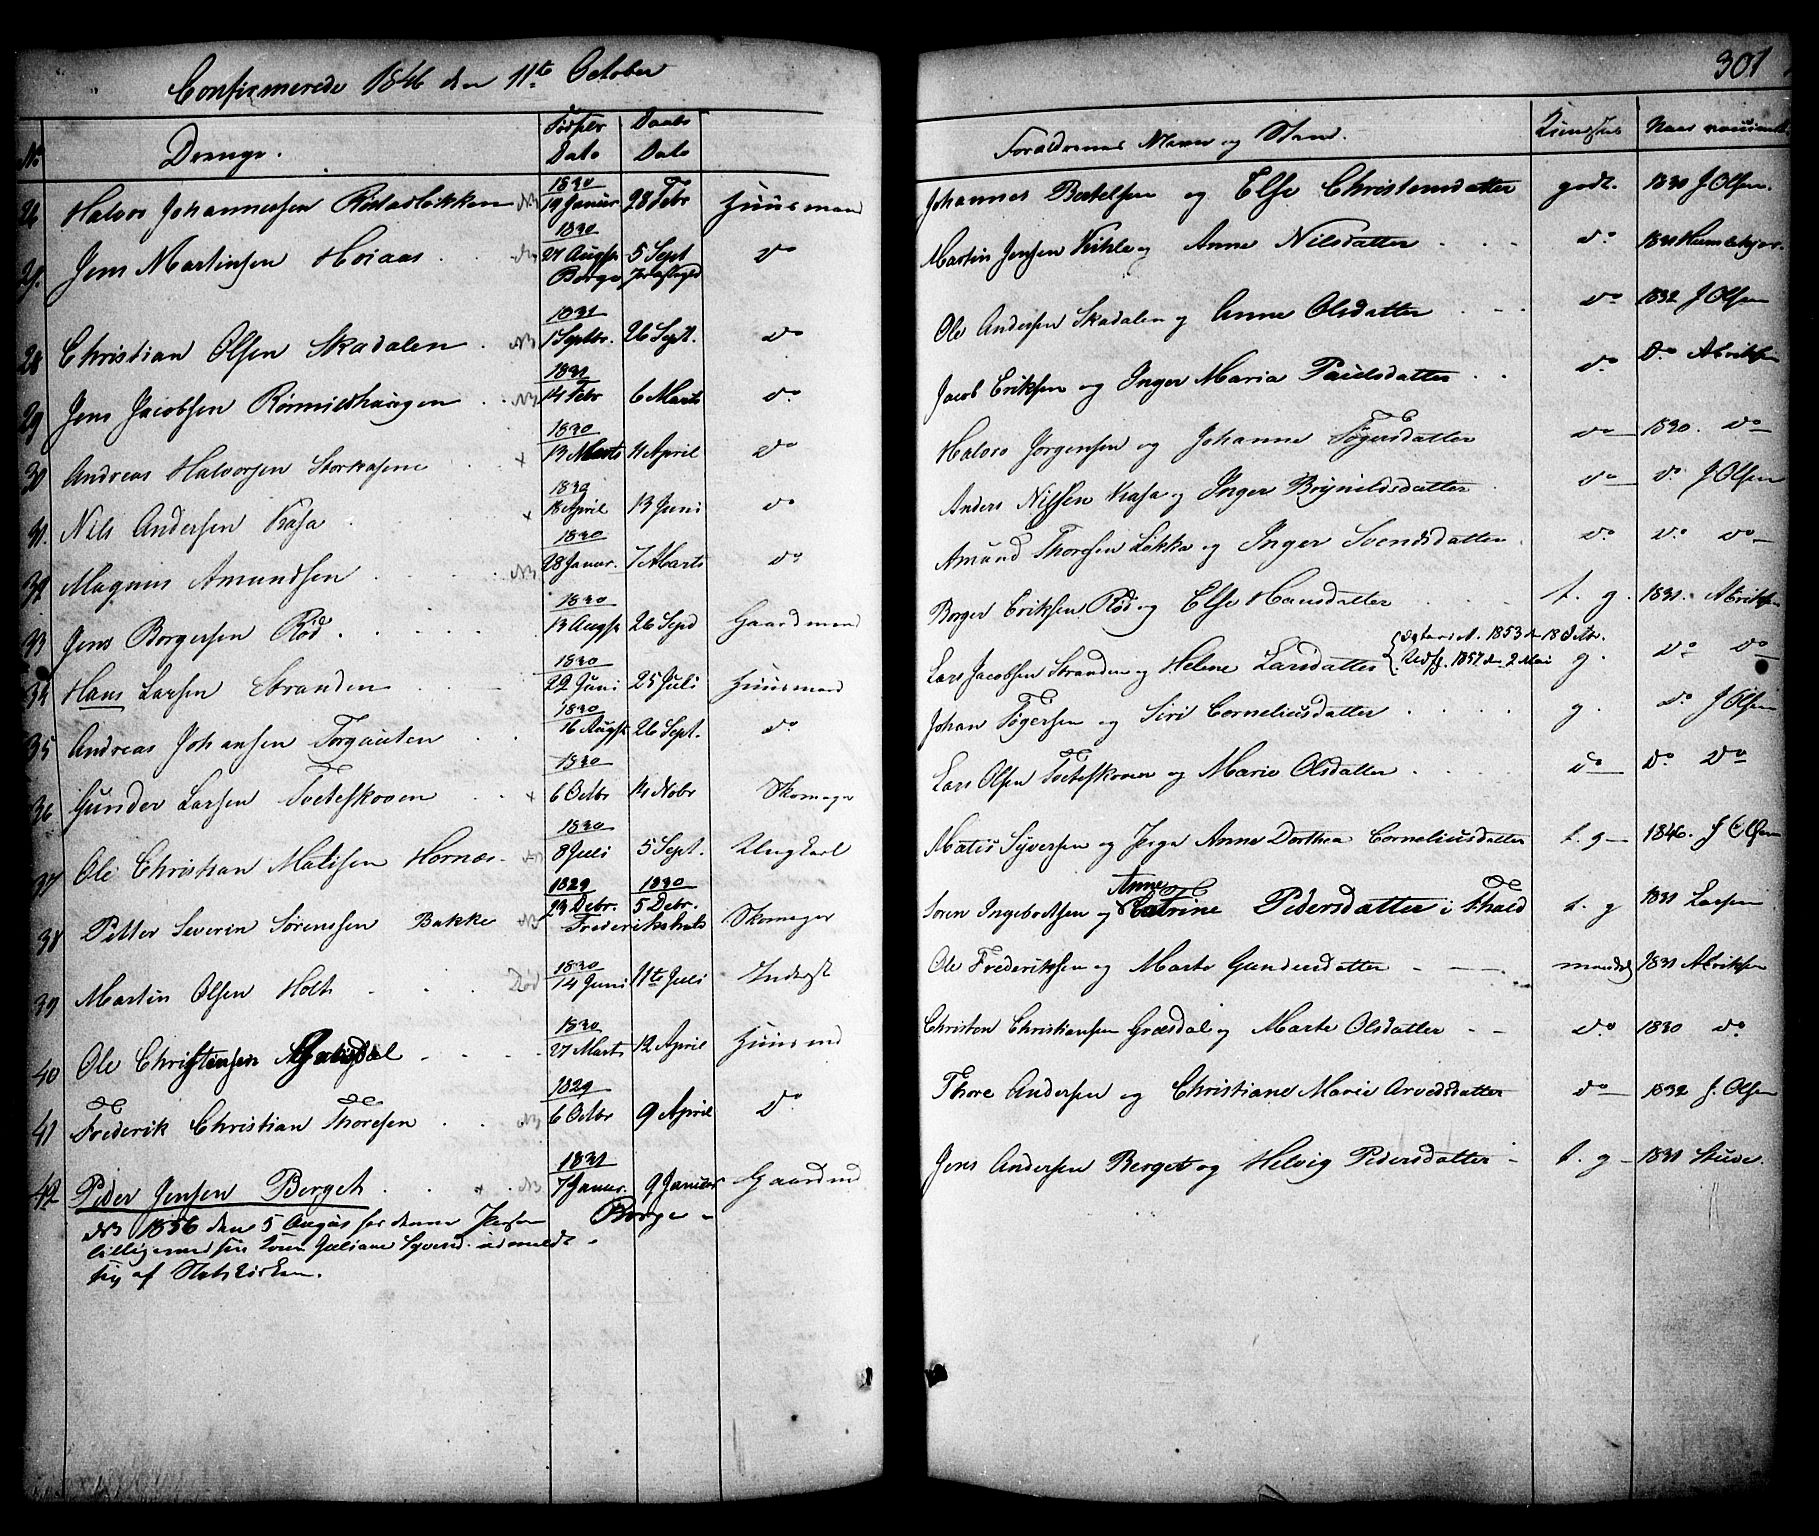 Confirmerede 1846 den 11te October
301
No Drenge. Fødsels Dato Daabs Dato Forældrenes Navne og Stand. Kundskab Naar vaccineret
26 Halvor Johannessen Röstadløkken NB 1830 19 Januar 28 Febr Huusmand Johannes Bertelsen og Else Christensdatter godt. 1830 J Olsen.
27. Jens Martinsen Hoiaas NB 1830 27 August Borge 5 Sept Huusmand do Martin Jensen og Anne Nilsdatter do 1831
28 Christian Olsen Skadalen NB 1831 1 Septbr. 26 Sept. do Ole Andersen Skadalen og Anne Olsdatter do 1832 J Olsen
29 Jens Jacobsen NB 1831 14 Febr 6 Marts do Jacob Eriksen og Inger Maria Paulsdatter do Do A Eriksen
30 Andreas Halvorsen Storkasene + 1830 13 Marts 4 April do Halvor Jørgensen og Johanne Tøgersdatter do 1830. do
31. Nils Andersen Kasa + 1830 18 April 13 Juni do Anders Nilssen Kasa og Inger Brynildsdatter do do J Olsen
32 Magnus Amundsen NB 1830 28 Januar. 7 Marts do Amund Thoresen Løkka og Inger Svendsdatter do do do
33 Jens Borgersen Röd 1830 13 August 26 Sept Gaardmand Borger Eriksen Röd og Else Hansdatter t. g. 1831. A Eriksen
34 Hans Larsen Stranden 1830 22 Juni 25 Juli Huusmand Lars Jacobsen Stranden og Helene Larsdatter 1853 d 18 Udfl. 1857 d. 2 Mai g. do do
35 Andreas Johansen Torgauten 1830 16 August 26 Sept. do Johan Tøgersen og Siri Corneliusdatter g. do J Olsen
36 Gunder Larsen Tveteskoven + 1830 6 Octbr 14 Nobr Skomager Lars Olsen Tveteskoven og Marie Olsdatter do do do
37 Ole Christian Matisen Hornæs 1830 8 Juli 5 Sept. Ungkarl Matis Syversen og Pige Anne Dorthea Corneliusdatter t. g 1846. J Olsen
38 Petter Severin Sørenssen Bakke NB 1829 23 Debr. 1830 5 Debr. Frederikshald Skomager Søren Ingebretsen og Anne Catrine Pedersdatter i Fhald t. g 1831 Larsen
39 Martin Olsen Holt Död 1830 14 Juni 11te Juli Inderst Ole Frederiksen og Marte Gundersdatter maadel. 1831 A Eriksen
40 Ole Christensen 1830 27 Marts 12 April Huusmd Christen Christiansen Græsdal og Marte Olsdatter do 1830 do
41 Frederik Christian Thoresen NB 1829 6 Octbr 9 April do Thore Andersen og Christiane Marie Arvedsdatter do 1832 J. Olsen
42 Peder Jensen Berget + NB 1831 7 Januar. 9 Januar Gaardmd Jens Andersen Berget og Helvig Pedersdatter t. g 1831 Stude.
NB 1856 den 5 Augus har denne Person Borge
tilligemed sin Kone Juliane Syversd. udmeldt
sig af Statskirken.